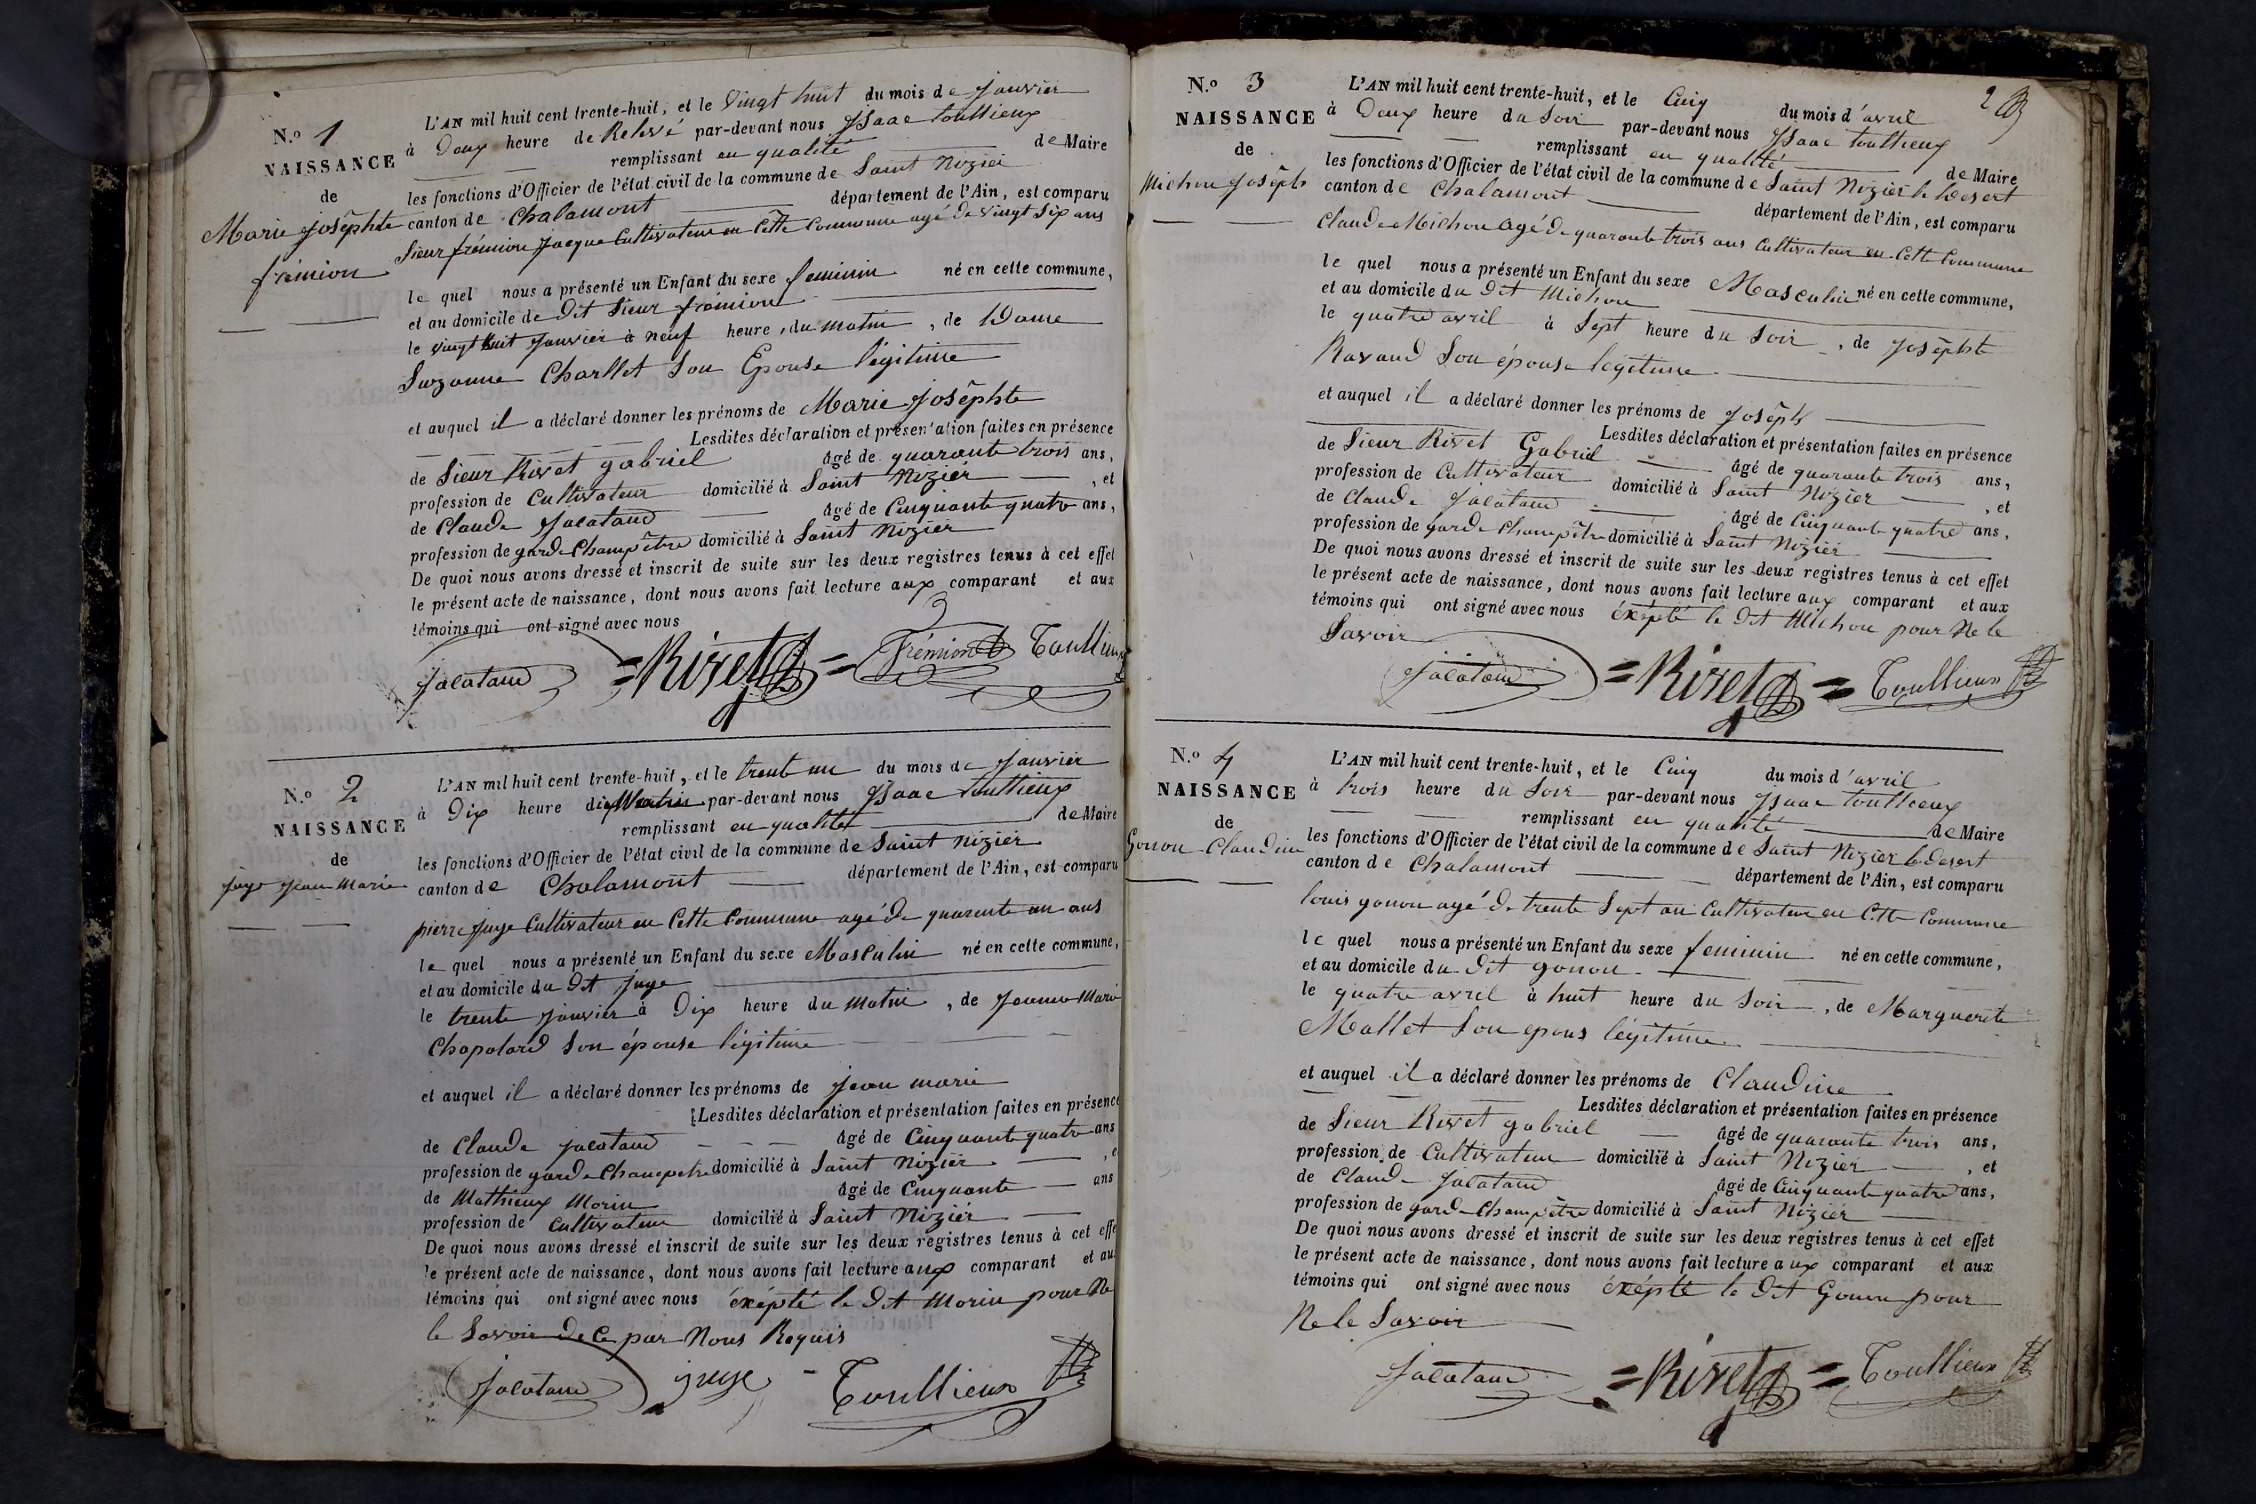 N.o 1
NAISSANCE
de
Marie josephte
frémion
L'AN mil huit cent trente-huit, et le vingt huit du mois de janvier
à Deux heure de Relevé par-devant nous jsaac toullieux
remplissant en qualité de Maire
les fonctions d'Officier de l'état civil de la commune de Saint Nizier
canton de Chalamont département de l'Ain, est comparu
Sieur frémion jacque Cultivateur en Cette Commune agé de vingt Six ans
le quel nous a présenté un Enfant du sexe feminin né en cette commune,
et au domicile de Dit Sieur frémion
le vingt huit janvier à neuf heure, du matin, de Dame
Suzanne Charllet Son Epouse légitime
et auquel il a déclaré donner les prénoms de Marie josephte
Lesdites déclaration et présentation faites en présence
de Sieur Rivet gabriel âgé de quarante trois ans,
profession de Cultivateur domicilié à Saint Nizier, et
de Claude jacataud âgé de Cinquante quatre ans,
profession de garde Champêtre domicilié à Saint Nizier
De quoi nous avons dressé et inscrit de suite sur les deux registres tenus à cet effet
le présent acte de naissance, dont nous avons fait lecture aux comparant et aux
témoins qui ont signé avec nous
jacataud =Rivet= Frémion Toullieux
N.o 2
NAISSANCE
de
juge jean Marie
L'AN mil huit cent trente-huit, et le trent un du mois de janvier
à Dix heure du Matin par-devant nous jsaac toullieux
remplissant en qualité de Maire
les fonctions d'Officier de l'état civil de la commune de Saint Nizier
canton de Chalamont département de l'Ain, est comparu
pierre juge Cultivateur en Cette Commune agé de quarente un ans
le quel nous a présenté un Enfant du sexe Masculin né en cette commune,
et au domicile du Dit juge
le trente janvier à Dix heure du matin, de jeanne Marie
Chapolard Son épouse légitime
et auquel il a déclaré donner les prénoms de jean marie
Lesdites déclaration et présentation faites en présence
de Claude jacataud âgé de Cinquante quatre ans
profession de garde Champetre domicilié à Saint Nizier
de Mathieux Morin âgé de Cinquante ans
profession de Cultivateur domicilié à Saint Nizier
De quoi nous avons dressé et inscrit de suite sur les deux registres tenus à cet effe
le présent acte de naissance, dont nous avons fait lecture aux comparant et au
témoins qui ont signé avec nous éxépté le Dit Morin pour Ne
le Savoir de Ce par Nous Requis
jacataud juge Toullieux
2
N.o 3
NAISSANCE
de
Michon joseph
L'AN mil huit cent trente-huit, et le Cinq du mois d'avril
à Deux heure du Soir par-devant nous jsaac toullieux
remplissant en qualité de Maire
les fonctions d'Officier de l'état civil de la commune de Saint Nizier le Desert
canton de Chalamont département de l'Ain, est comparu
Claude Michon agé de quarante trois ans Cultivateur en Cette Commune
le quel nous a présenté un Enfant du sexe Masculin né en cette commune,
et au domicile du Dit Michon
le quatre avril à Sept heure du Soir, de josephte
Ravaud Son épouse légitime
et auquel il a déclaré donner les prénoms de joseph
Lesdites déclaration et présentation faites en présence
de Sieur Rivet Gabriel âgé de quarante trois ans,
profession de Cultivateur domicilié à Saint Nizier, et
de Claude jacataud âgé de Cinquante quatre ans,
profession de garde Champêtre domicilié à Saint Nizier
De quoi nous avons dressé et inscrit de suite sur les deux registres tenus à cet effet
le présent acte de naissance, dont nous avons fait lecture aux comparant et aux
témoins qui ont signé avec nous éxépté le Dit Michon pour Ne le
Savoir
jacataud =Rivet= Toullieux
N.o 4
NAISSANCE
de
Gonon Claudine
L'AN mil huit cent trente-huit, et le Cinq du mois d'avril
à trois heure du Soir par-devant nous jsaac toullieux
remplissant en qualité de Maire
les fonctions d'Officier de l'état civil de la commune de Saint Nizier le Desert
canton de Chalamont département de l'Ain, est comparu
louis gonon agé de trente Sept an Cultivateur en Cette Commune
le quel nous a présenté un Enfant du sexe feminin né en cette commune,
et au domicile du Dit gonon
le quatre avril à huit heure du Soir, de Marguerite
Mallet Son epous légitime
et auquel il a déclaré donner les prénoms de Claudine
Lesdites déclaration et présentation faites en présence
de Sieur Rivet gabriel âgé de quarante trois ans,
profession de Cultivateur domicilié à Saint Nizier, et
de Claude jacataud âgé de Cinquante quatre ans,
profession de garde Champêtre domicilié à Saint Nizier
De quoi nous avons dressé et inscrit de suite sur les deux registres tenus à cet effet
le présent acte de naissance, dont nous avons fait lecture aux comparant et aux
témoins qui ont signé avec nous éxépté le Dit Gonon pour
Ne le Savoir
jacataud =Rivet= Toullieux